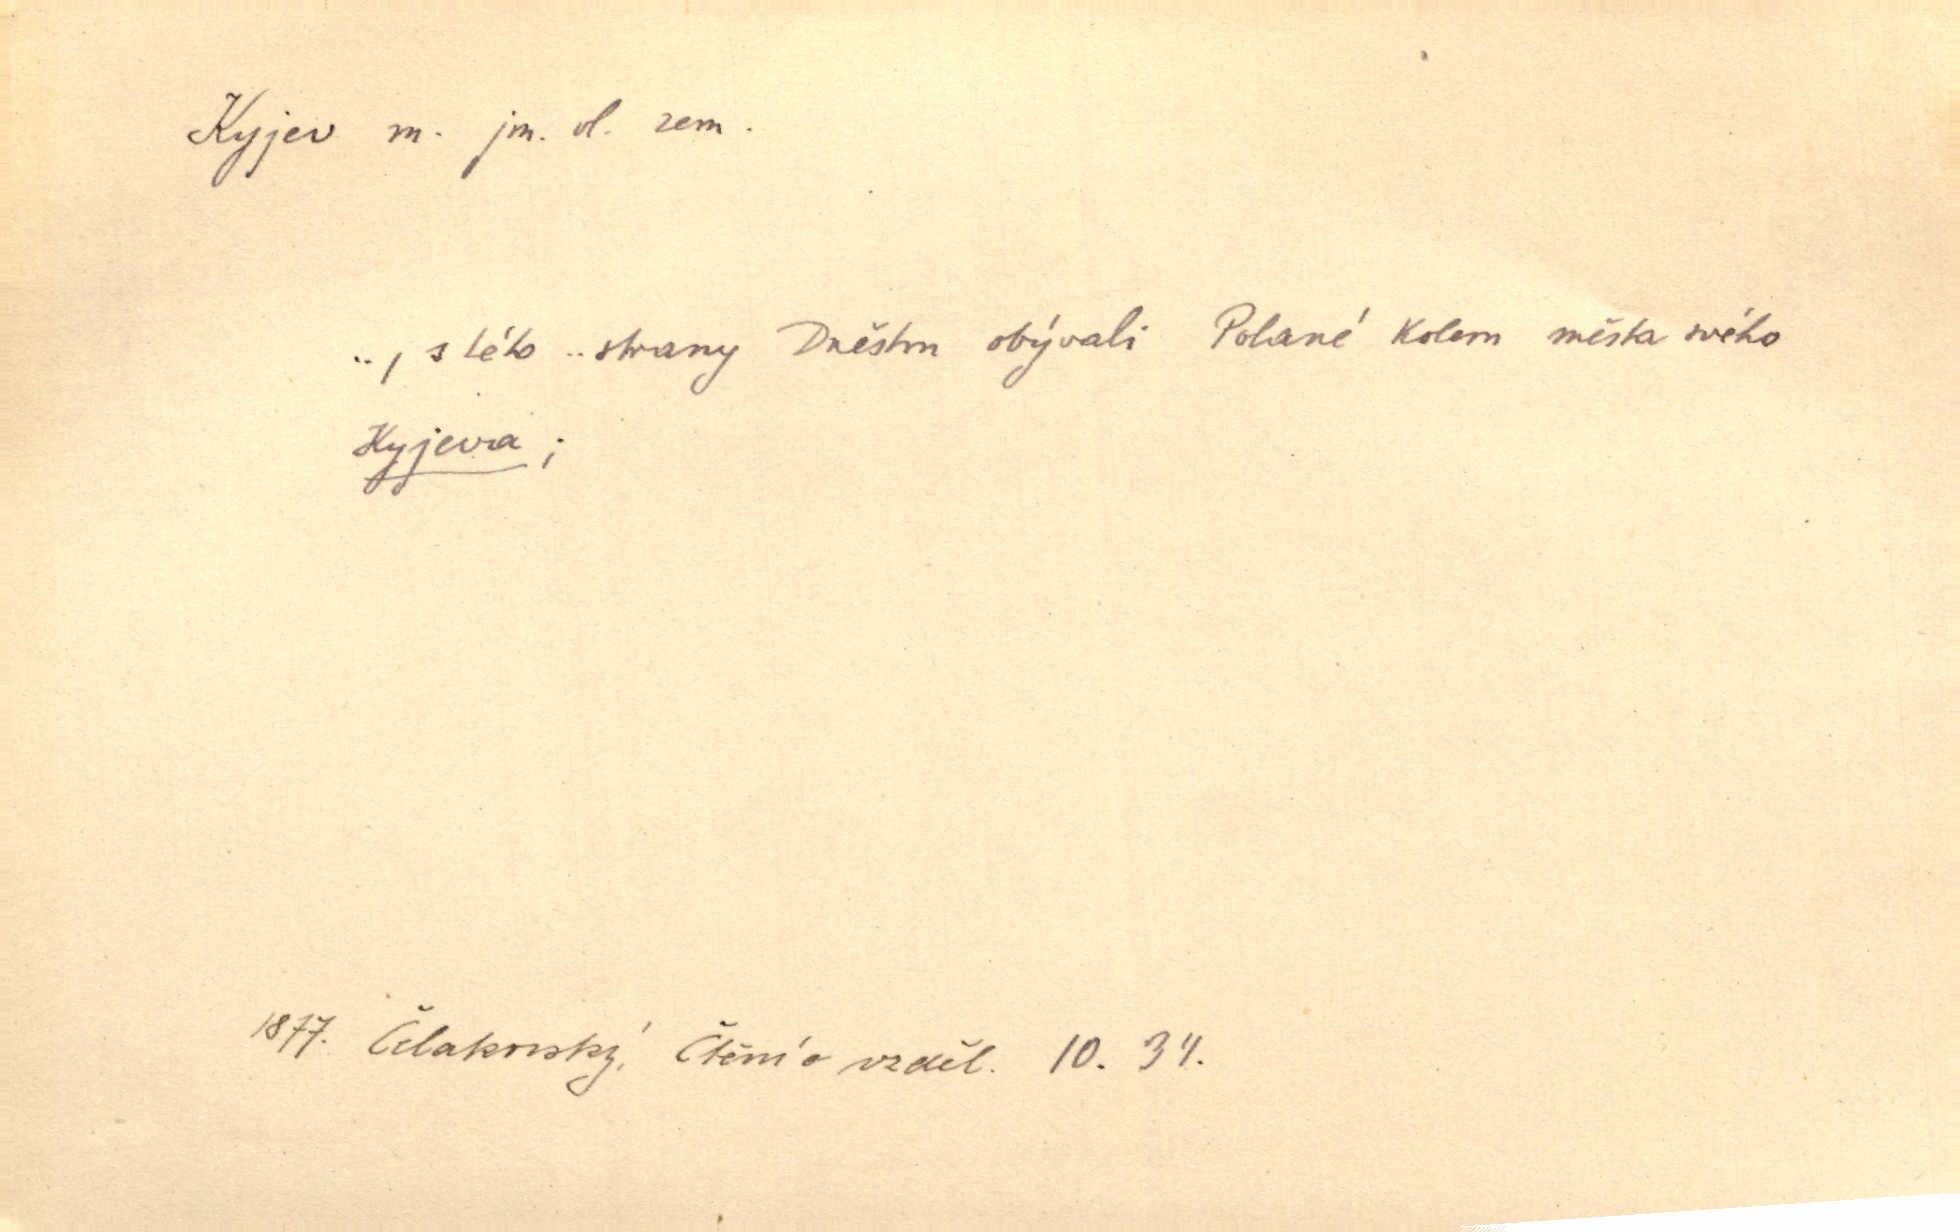 Kyjev m. jm. vl. zem.
.., s této .. strany Dněstru obývali Polané kolem města svého
Kyjeva ;
1877. Čelakovský, Čtení o vzděl. 10. 34.